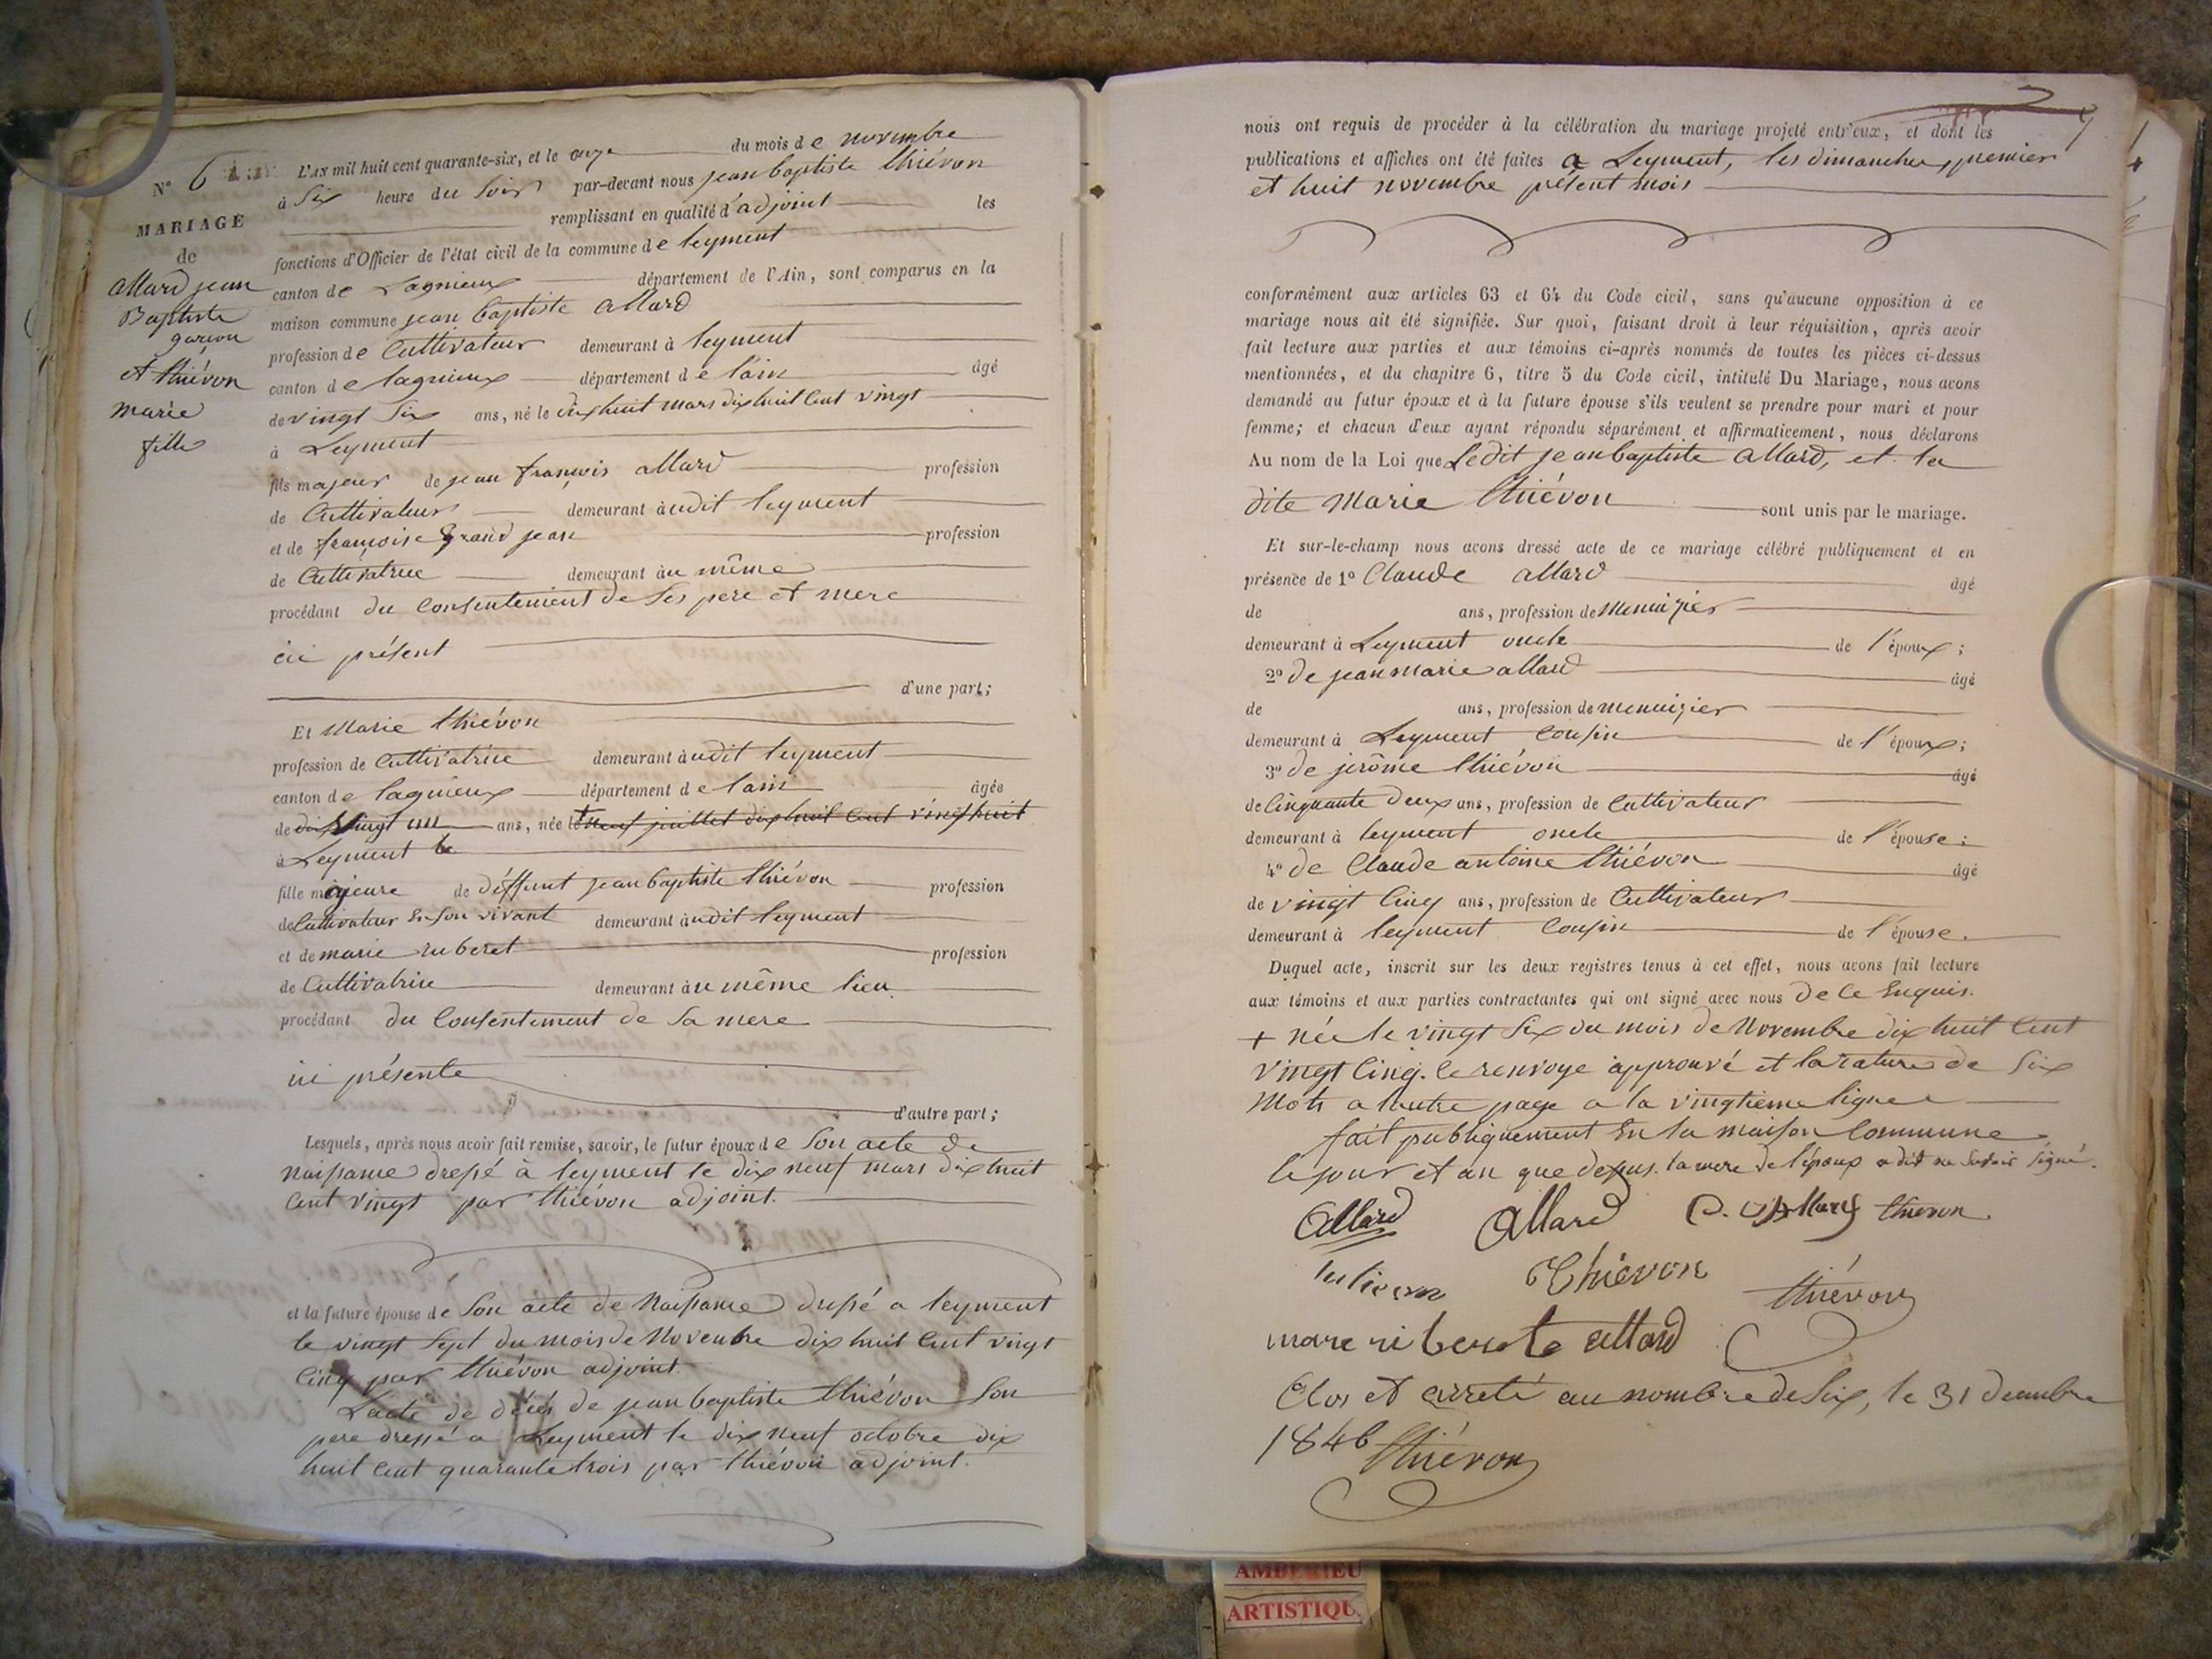 N° 6
MARIAGE
de
allard jean
Baptiste
garçon
et thiévon
marie
fille
L'AN mil huit cent quarante-six, et le onze du mois de novembre
à Six heure du Soir par-devant nous jean baptiste thiévon
remplissant en qualité d'adjoint les
fonctions d'Officier de l'état civil de la commune de leyment
canton de Lagnieux département de l'Ain, sont comparus en la
maison commune jean baptiste allard
profession de Cultivateur demeurant à leyment
canton de lagnieux département de l'ain âgé
de vingt Six ans, né le dix huit mars dix huit Cent vingt
à Leyment
fils majeur de jean françois allard profession
de Cultivateur demeurant àudit leyment
et de françoise Grand jean profession
de Cultivatrice demeurant àu même
procédant du Consentement de Ses pere et mere
ici présent
d'une part;
Et Marie thiévon
profession de Cultivatrice demeurant àudit leyment
canton de lagnieux département de l'ain âgée
de vingt un ans, née le + neuf juillet dix huit Cent vingt huit
à Leyment le
fille majeure de déffunt jean baptiste thiévon profession
de Cultivateur En Son vivant demeurant àudit leyment
et de marie ruberet profession
de Cultivatrice demeurant àu même lieu
procédant du Consentement de Sa mere
ici présente
d'autre part;
Lesquels, après nous avoir fait remise, savoir, le futur époux de Son acte de
Naissance dressé à leyment le dix neuf mars dix huit
Cent vingt par thiévon adjoint.
et la future épouse de Son acte de Naissance dressé a leyment
le vingt Sept du mois de Novembre dix huit Cent vingt
Cinq par thiévon adjoint.
L'acte de décés de jean baptiste thiévon Son
pere dressé a Leyment le dix neuf octobre dix
huit Cent quarante trois par thiévon adjoint.
nous ont requis de procéder à la célébration du mariage projeté entr'eux, et dont les
publications et affiches ont été faites a Leyment, les dimanches, premier
et huit novembre présent mois
conformément aux articles 63 et 64 du Code civil, sans qu'aucune opposition à ce
mariage nous ait été signifiée. Sur quoi, faisant droit à leur réquisition, après avoir
fait lecture aux parties et aux témoins ci-après nommés de toutes les pièces ci-dessus
mentionnées, et du chapitre 6, titre 5 du Code civil, intitulé Du Mariage, nous avons
demandé au futur époux et à la future épouse s'ils veulent se prendre pour mari et pour
femme; et chacun d'eux ayant répondu séparément et affirmativement, nous déclarons
Au nom de la Loi que Ledit jean baptiste allard, et la
dite Marie thiévon sont unis par le mariage.
Et sur-le-champ nous avons dressé acte de ce mariage célébré publiquement et en
présence de 1° Claude allard âgé
de ans, profession de Menuizier
demeurant à Leyment oncle de l'époux;
2° de jean marie allard âgé
de ans, profession de menuizier
demeurant à Leyment Cousin de l'époux;
3° de jerôme thiévon âgé
de Cinquante deux ans, profession de Cultivateur
demeurant à leyment oncle de l'épouse;
4° de Claude antoine thiévon âgé
de vingt Cinq ans, profession de Cultivateur
demeurant à leyment Cousin de l'épouse.
Duquel acte, inscrit sur les deux registres tenus à cet effet, nous avons fait lecture
aux témoins et aux parties contractantes qui ont signé avec nous de Ce Enquis.
+ née le vingt Six du mois de Novembre dix huit Cent
vingt Cinq. le renvoye approuvé et la rature de Six
Mots a l'autre page a la vingtieme ligne
fait publiquement En la maison Commune
le jour et an que dessus. la mere de l'époux a dit ne Savoir Signé.
Allard Allard C. Allard thievon
Thiévon
thiévon
allard
Clos et arreté au nombre de Six, le 31 decembre
1846 Thiévon
AMBERIEU
ARTISTIQU